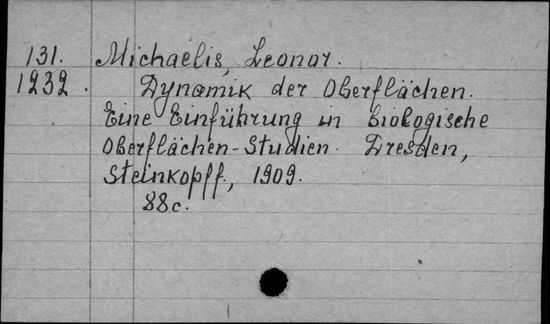 131. Michaelis, Leonor.
1232. Dynamik der Oberflächen.
Eine Einführung in biologische
Oberflächen-Studien. Dresden,
Steinkopff, 1909.
88c.